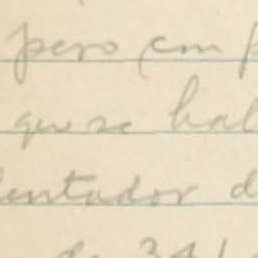 pero con p
que se hal
lentador d
de 341